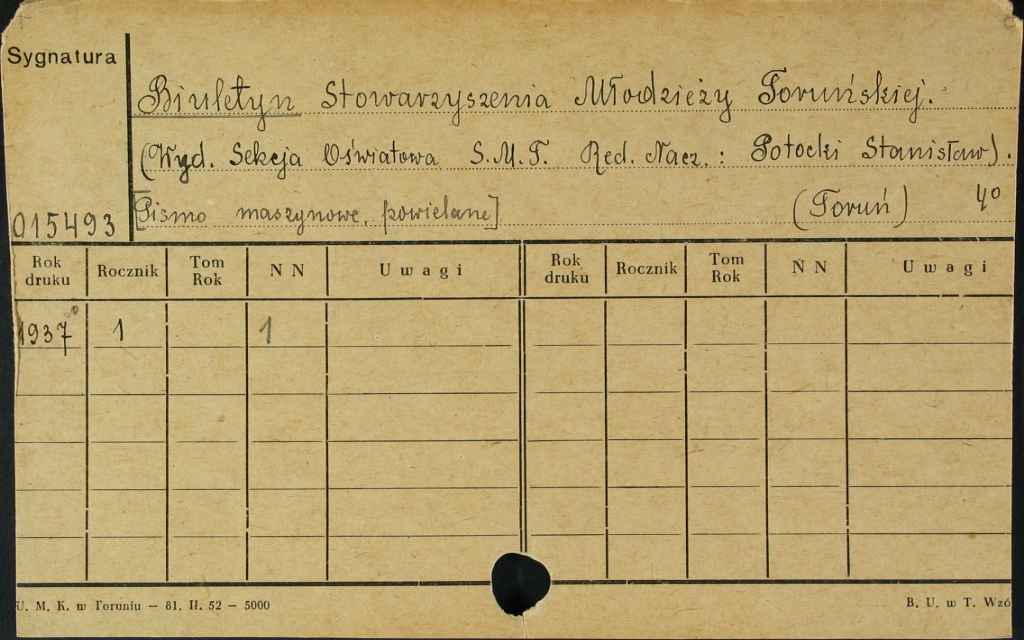 Sygnatura
Biuletyn Stowarzyszenia Młodzieży Toruńskiej.
(Wyd. Sekcja Oświatowa S.M.T. Red. Nacz.: Potocki Stanisław).
[Pismo maszynowe, powielane] (Toruń) 4º
015493
Rok druku Rocznik Tom Rok N N U w a g i Rok druku Rocznik Tom Rok N N U w a g i
1937 1 1
U. M. K. w Toruniu – 81. II. 52 – 5000 B. U. w T. Wzó